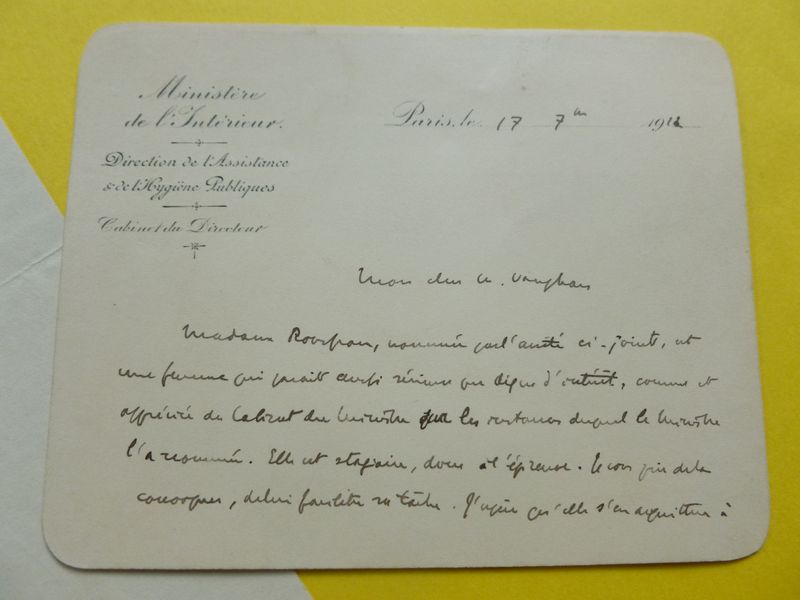 Ministère
de l'Intérieur.
Direction de l'Assistance
& de l'Hygiène Publiques
Cabinet du Directeur
Paris, le 17 7bre 1911
Mon cher M. Vaughan
Madame nommée par l'arrêté ci-joint, est
une femme qui paraît aussi sérieuse que digne d'intérêt, connue et
appréciée du Cabinet du Ministre les instances duquel le Ministre
l'a nommée. Elle est stagiaire, donc à l'épreuve. Je vous prie de la
convoquer, de lui faciliter sa tâche. J'espère qu'elle s'en acquittera à